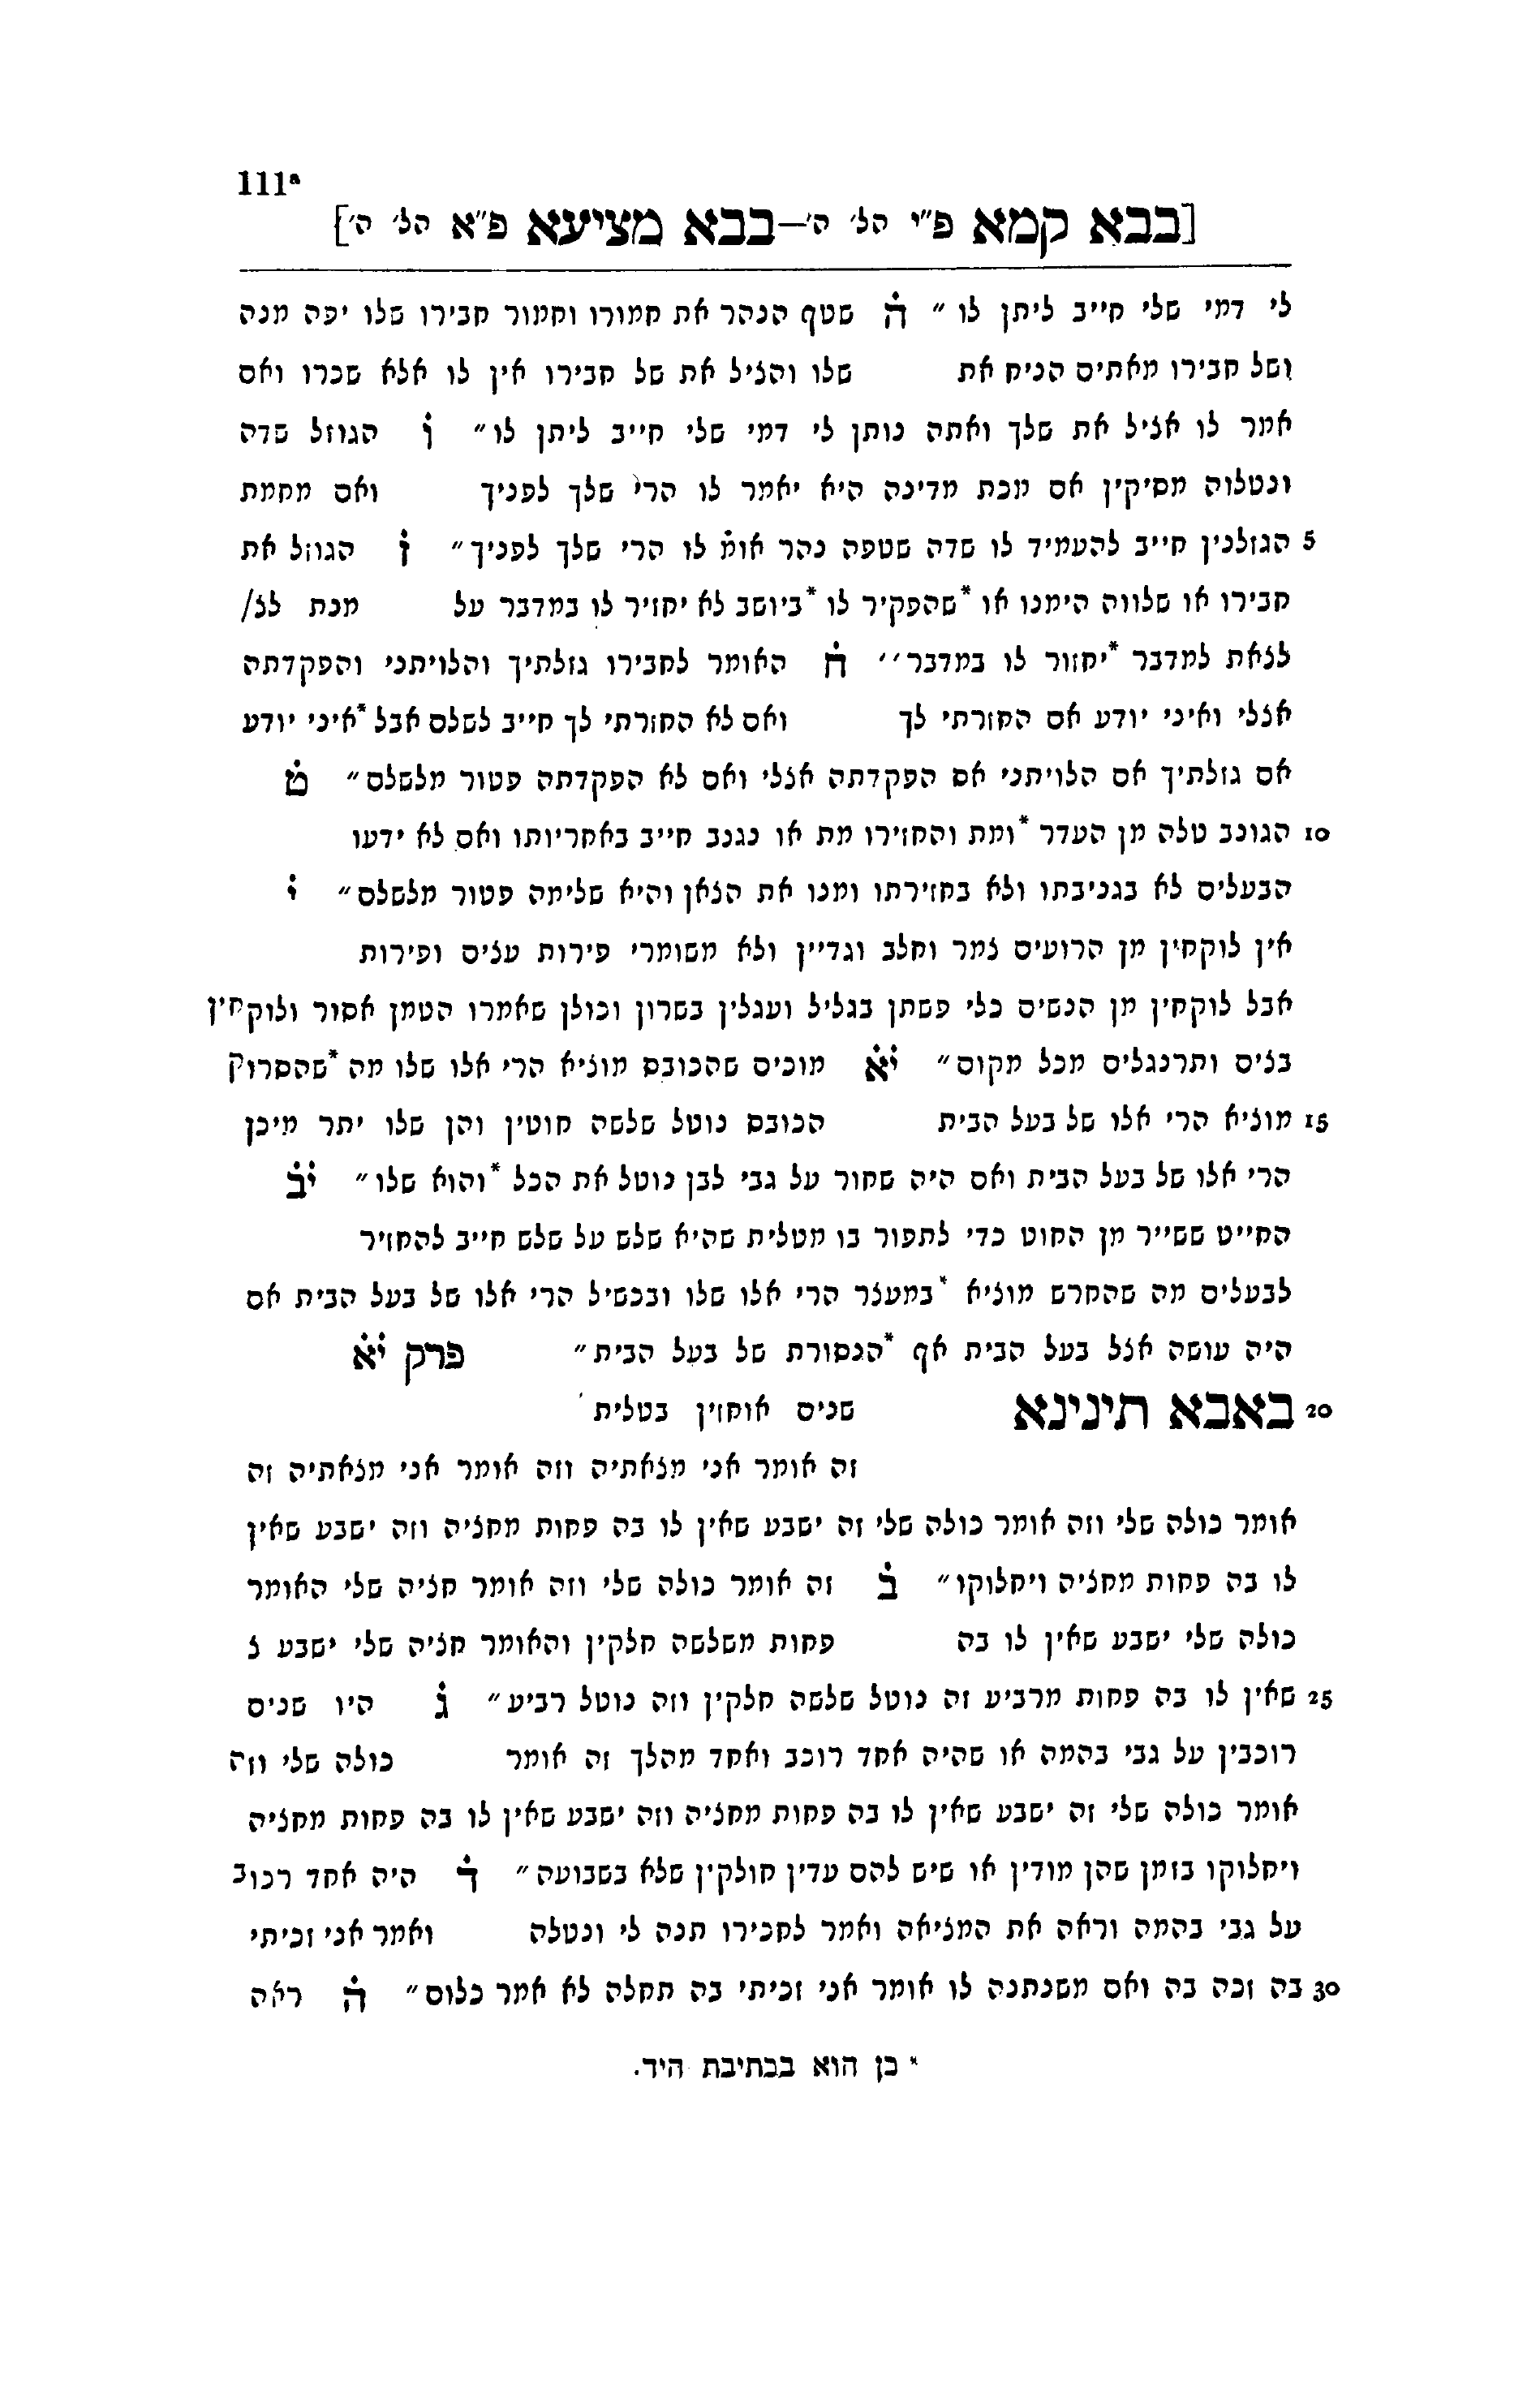 111a
[בבא קמא פ"י הל' ה'—בבא מציעא פ"א הל' ה']
לי דמי שלי חייב ליתן לו " ה שטף הנהר את חמורו וחמור חבירו שלו יפה מנה
ושל חבירו מאתים הניח את שלו והציל את של חבירו אין לו אלא שכרו ואם
אמר לו אציל את שלך ואתה נותן לי דמי שלי חייב ליתן לו " ו הגוזל שדה
ונטלוה מסיקין אם מכת מדינה היא יאמר לו הרי שלך לפניך ואם מחמת
5 הגזלנין חייב להעמיד לו שדה שטפה נהר אומ' לו הרי שלך לפניך " ז הגוזל את
חבירו או שלווה הימנו או *שהפקיר לו *ביושב לא יחזיר לו במדבר על מנת לצ/
לצאת למדבר *יחזור לו במדבר " ח האומר לחבירו גזלתיך והלויתני והפקדתה
אצלי ואיני יודע אם החזרתי לך ואם לא החזרתי לך חייב לשלם אבל *איני יודע
אם גזלתיך אם הלויתני אם הפקדתה אצלי ואם לא הפקדתה פטור מלשלם " ט
10 הגונב טלה מן העדר *ומת והחזירו מת או נגנב חייב באחריותו ואם לא ידעו
הבעלים לא בגניבתו ולא בחזירתו ומנו את הצאן והיא שלימה פטור מלשלם " י
אין לוקחין מן הרועים צמר וחלב וגדיין ולא משומרי פירות עצים ופירות
אבל לוקחין מן הנשים כלי פשתן בגליל ועגלין בשרון וכולן שאמרו הטמן אסור ולוקחין
בצים ותרנגלים מכל מקום " יא מוכים שהכובס מוציא הרי אלו שלו מה *שהסרוק
15 מוציא הרי אלו של בעל הבית הכובס נוטל שלשה חוטין והן שלו יתר מיכן
הרי אלו של בעל הבית ואם היה שחור על גבי לבן נוטל את הכל *והוא שלו " יב
החייט ששייר מן החוט כדי לתפור בו מטלית שהיא שלש על שלש חייב להחזיר
לבעלים מה שהחרש מוציא *במעצר הרי אלו שלו ובכשיל הרי אלו של בעל הבית אם
היה עושה אצל בעל הבית אף *הנסורת של בעל הבית " פרק יא
20 באבא תינינא שנים אוחזין בטלית
זה אומר אני מצאתיה וזה אומר אני מצאתיה זה
אומר כולה שלי וזה אומר כולה שלי זה ישבע שאין לו בה פחות מחציה וזה ישבע שאין
לו בה פחות מחציה ויחלוקו " ב זה אומר כולה שלי וזה אומר חציה שלי האומר
כולה שלי ישבע שאין לו בה פחות משלשה חלקין והאומר חציה שלי ישבע צ
25 שאין לו בה פחות מרביע זה נוטל שלשה חלקין וזה נוטל רביע " ג היו שנים
רוכבין על גבי בהמה או שהיה אחד רוכב ואחד מהלך זה אומר כולה שלי וזה
אומר כולה שלי זה ישבע שאין לו בה פחות מחציה וזה ישבע שאין לו בה פחות מחציה
ויחלוקו בזמן שהן מודין או שיש להם עדין חולקין שלא בשבועה " ד היה אחד רכוב
על גבי בהמה וראה את המציאה ואמר לחבירו תנה לי ונטלה ואמר אני זכיתי
30 בה זכה בה ואם משנתנה לו אומר אני זכיתי בה תחלה לא אמר כלום " ה ראה
* כן הוא בכתיבת היד.